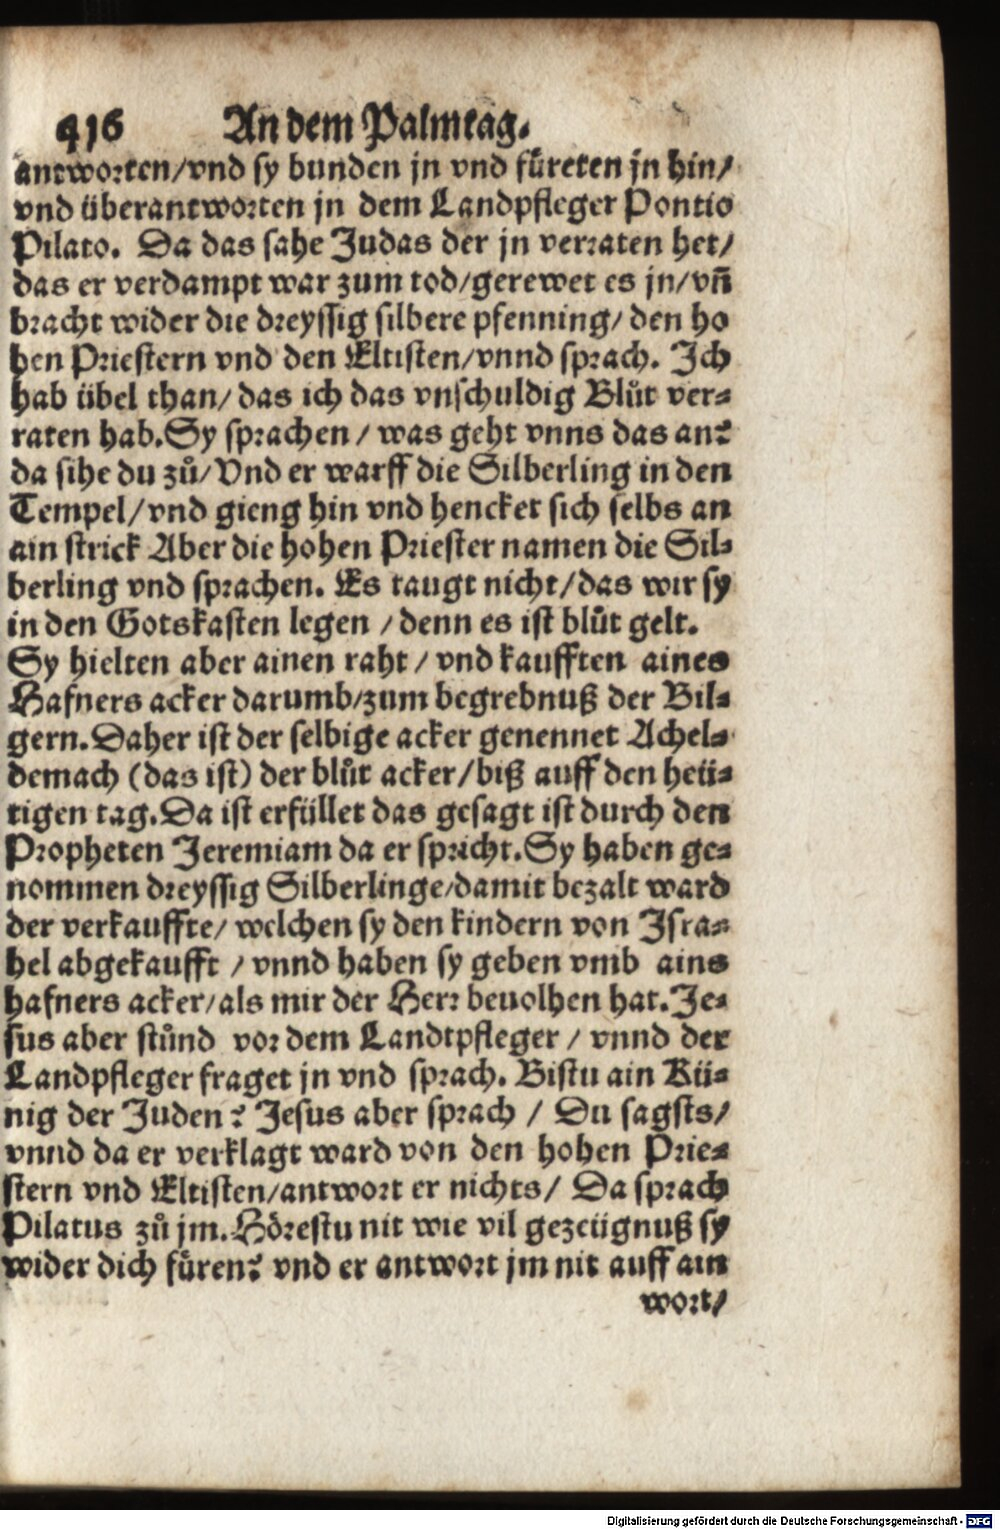 416 An dem Palmtag.
antworten/vnd sy bunden jn vnd fůreten jn hin/
vnd überantworten jn dem Landpfleger Pontio
Pilato. Da das sahe Judas der jn verraten het/
das er verdampt war zum tod/gerewet es jn/vñ
bracht wider die dreyssig silbere pfenning/ den ho
hen Priestern vnd den Eltisten/vnnd sprach. Ich
hab übel than/ das ich das vnschuldig Blůt ver⸗
raten hab.Sy sprachen / was geht vnns das an?
da sihe du zů/Vnd er warff die Silberling in den
Tempel/vnd gieng hin vnd hencket sich selbs an
ain strick Aber die hohen Priester namen die Sil⸗
berling vnd sprachen. Es taugt nicht/das wir sy
in den Gotskasten legen / denn es ist blůt gelt.
Sy hielten aber ainen raht / vnd kaufften aines
Hafners acker darumb/zum begrebnuß der Bil⸗
gern.Daher ist der selbige acker genennet Achel⸗
demach (das ist) der blůt acker/biß auff den heü⸗
tigen tag.Da ist erfüllet das gesagt ist durch den
Propheten Jeremiam da er spricht.Sy haben ge⸗
nommen dreyssig Silberlinge/damit bezalt ward
der verkauffte/ welchen sy den kindern von Isra⸗
hel abgekaufft / vnnd haben sy geben vmb ains
hafners acker/als mir der Herr beuolhen hat.Je⸗
sus aber stůnd vor dem Landtpfleger / vnnd der
Landpfleger fraget jn vnd sprach. Bistu ain Kü⸗
nig der Juden? Jesus aber sprach / Du sagsts/
vnnd da er verklagt ward von den hohen Prie⸗
stern vnd Eltisten/antwort er nichts/ Da sprach
Pilatus zů jm.Hörestu nit wie vil gezeügnuß sy
wider dich fůren? vnd er antwort jm nit auff ain
wort/
Digitalisierung gefördert durch die Deutsche Forschungsgemeinschaft - DFG